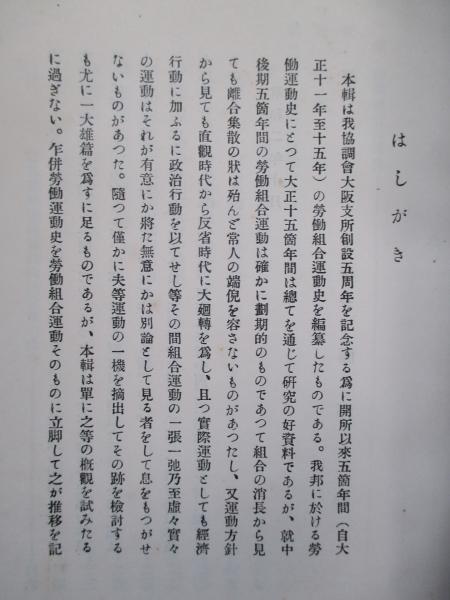 はしがき
本輯は我協調會大阪支所創設五周年を記念する爲に開所以來五箇年間（自大
正十一年至十五年）の勞働組合運動史を編纂したものである。我邦に於ける勞
働運動史にとつて大正十五箇年間は總てを通じて硏究の好資料であるが、就中
後期五箇年間の勞働組合運動は確かに劃期的のものであつて組合の消長から見
ても離合集散の狀は殆んど常人の端倪を容さないものがあつたし、又運動方針
から見ても直觀時代から反省時代に大廻轉を爲し、且つ實際運動としても經濟
行動に加ふるに政治行動を以てせし等その間組合運動の一張一弛乃至虛々實々
の運動はそれが有意にか將た無意にかは別論として見る者をして息をもつがせ
ないものがあつた。隨つて僅かに夫等運動の一機を摘出してその跡を檢討する
も尤に一大雄篇を爲すに足るものであるが、本輯は單に之等の槪觀を試みたる
に過ぎない。乍併勞働運動史を勞働組合運動そのものに立脚して之が推移を記